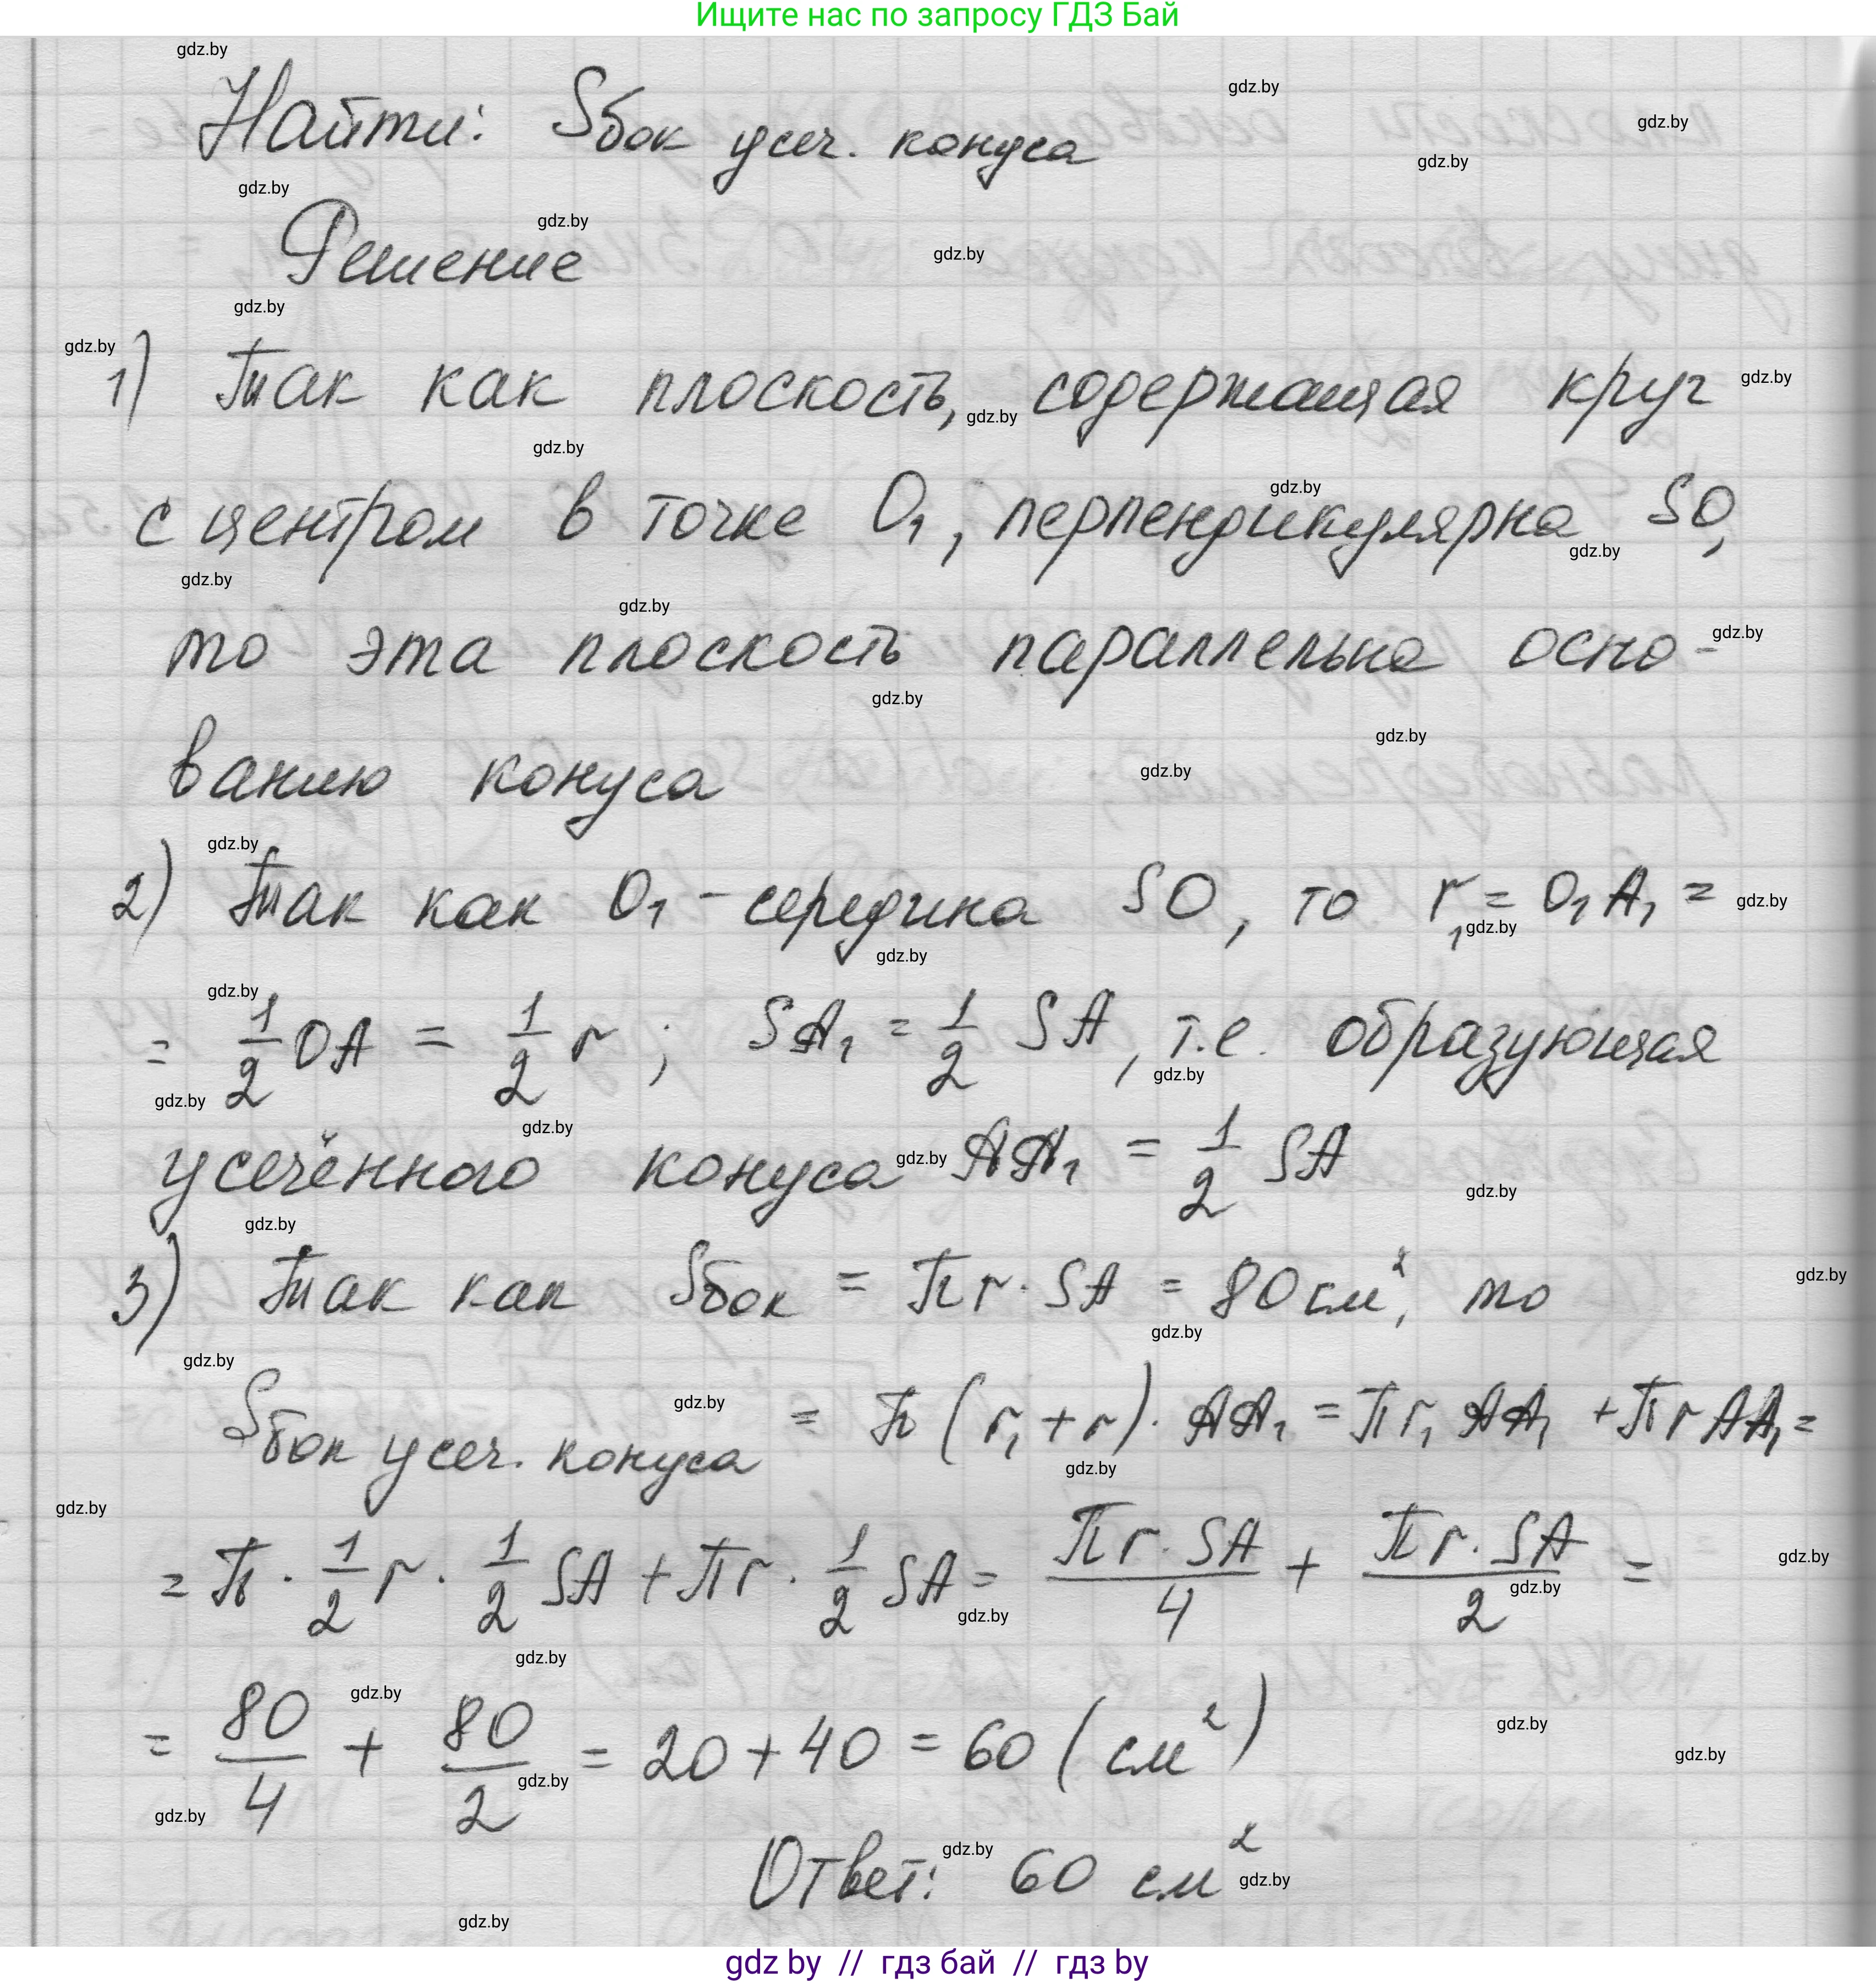 Ищите нас по запросу ГДЗ Бай
Найти: Sбок усеч. конуса
Решение
1) Так как плоскость, содержащая круг
с центром в точке O₁, перпендикулярна SO,
то эта плоскость параллельна осно-
ванию конуса
2) Так как O₁ - середина SO, то r₁ = O₁A₁ =
= 1/2 OA = 1/2 r; SA₁ = 1/2 SA, т.е. образующая
усечённого конуса AA₁ = 1/2 SA
3) Так как Sбок = πr · SA = 80 см², то
Sбок усеч. конуса = π(r₁ + r) · AA₁ = πr₁ AA₁ + πr AA₁ =
= π · 1/2 r · 1/2 SA + πr · 1/2 SA = πr · SA/4 + πr · SA/2 =
= 80/4 + 80/2 = 20 + 40 = 60 (см²)
Ответ: 60 см²
gdz by // гдз бай // гдз by